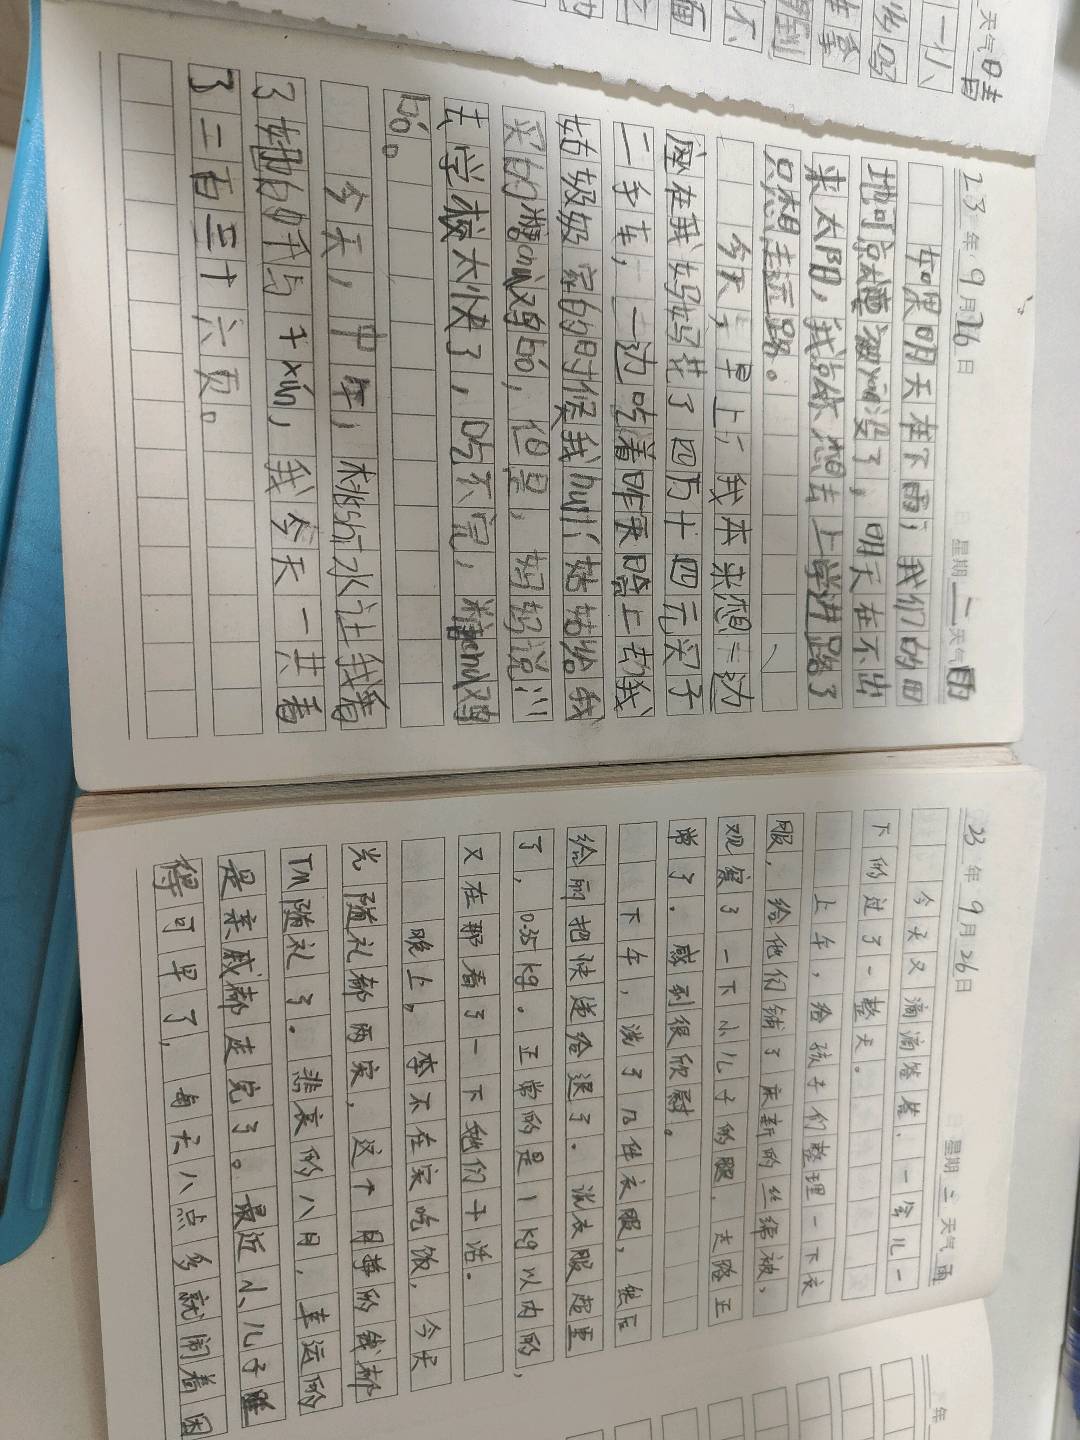 天气晴
23年9月26日 星期二 天气雨
如果明天在下雨，我们的田
地可就要被yān没了，明天在不出
来太阳，我就不想去上学进路了
只想走玩路。
今天，早上，我本来想一边
座在我妈妈花了四万十四元买了
二手车，一边吃着昨天晚上去我
姑奶奶家的时候我huí姑姑给我
买的糖 鸡 ，但是，妈妈说：
去学校太快了，吃不完，糖 鸡
。
今天，中午，桃 水让我看
了她的手与干xìn，我今天一共看
了二百三十六页。
23年9月26日 星期二 天气雨
今天又滴滴答答，一会儿一
下的过了一整天。
上午，给孩子们整理一下衣
服，给他们铺了床新的丝绵被，
观察了一下小儿子的腿，走路正
常了。感到很欣慰。
下午，洗了几件衣服，然后
给丽把快递给退了。说衣服超重
了，0.35kg。正常的是1kg以内的，
又在那看了一下她们干活。
晚上，李不在家吃饭，今天
光随礼都两家，这个月挣的钱都
TM随礼了。悲哀的八月，幸运的
是亲戚都走完了。最近小儿子睡
得可早了，每天八点多就闹着困
年